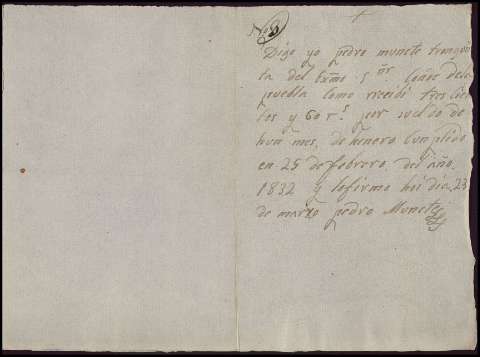 Digo yo pedro munete tranqui
ta del Exmo Snr Conde dela
puebla como rrecibi trescien
tos y 60 rs por sueldo de
hun mes, de henero Cunplido
en 25 de febrero del año
1832 y lofirmo hoi dia 23
de marzo pedro Munete